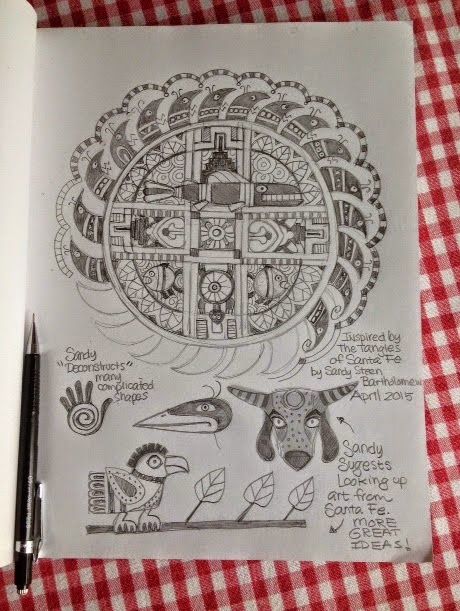 Inspired by
The Tangles
of Santa Fe
by Sandy Steen
Bartholomew
April 2015
Sandy
"Deconstructs"
many
complicated
shapes
Sandy
Sugests
Looking up
art from
Santa Fe.
MORE
GREAT
IDEAS!